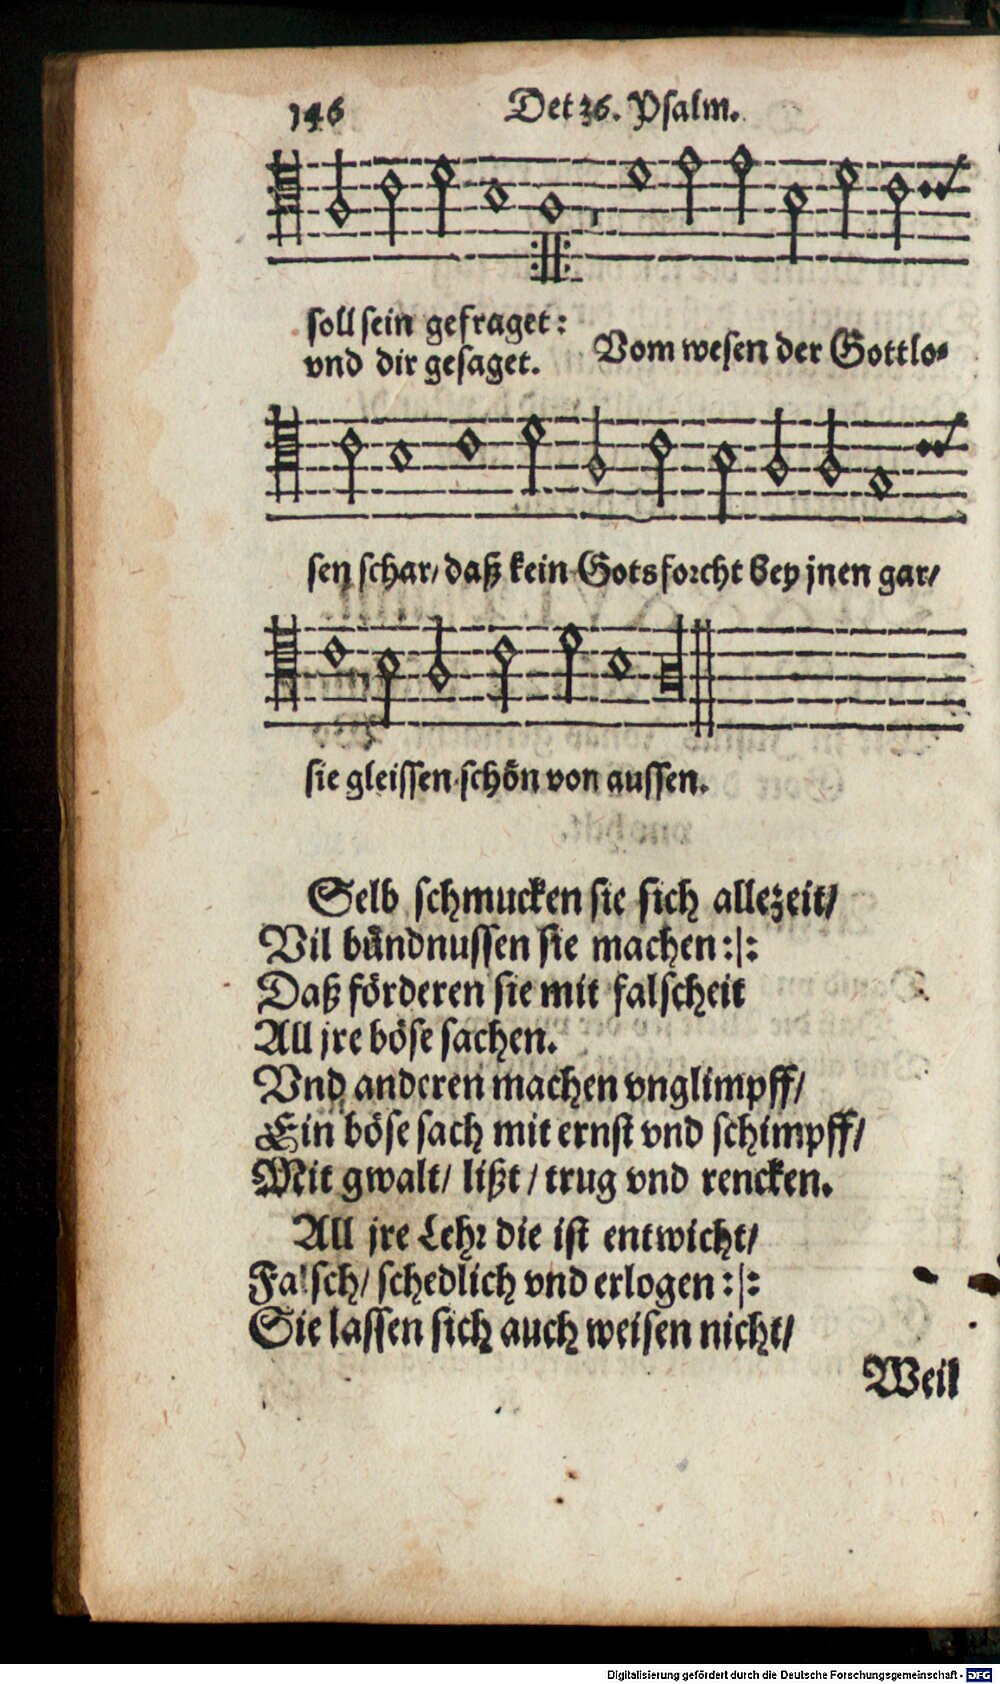 146
Det 36. Psalm.
soll sein gefraget:
vnd dir gesaget.
Vom wesen der Gottlo-
sen schar/ daß kein Gotsforcht bey jnen gar/
sie gleissen schön von aussen.
Selb schmucken sie sich allezeit/
Vil bündnussen sie machen :|:
Daß förderen sie mit falscheit
All jre böse sachen.
Vnd anderen machen vnglimpff/
Ein böse sach mit ernst vnd schimpff/
Mit gwalt/ lißt/ trug vnd rencken.
All jre Lehr die ist entwicht/
Falsch/ schedlich vnd erlogen :|:
Sie lassen sich auch weisen nicht/
Weil
Digitalisierung gefördert durch die Deutsche Forschungsgemeinschaft - DFG